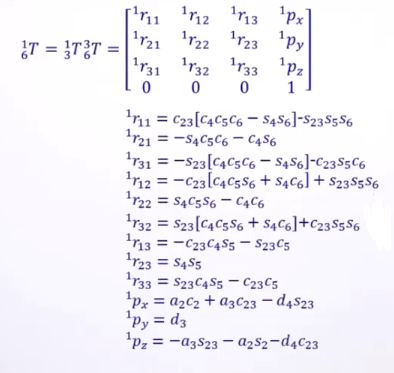 ¹₆T = ¹₃T³₆T = [¹r₁₁ ¹r₁₂ ¹r₁₃ ¹pₓ
¹r₂₁ ¹r₂₂ ¹r₂₃ ¹p_y
¹r₃₁ ¹r₃₂ ¹r₃₃ ¹p_z
0 0 0 1]
¹r₁₁ = c₂₃[c₄c₅c₆ − s₄s₆]-s₂₃s₅s₆
¹r₂₁ = −s₄c₅c₆ − c₄s₆
¹r₃₁ = −s₂₃[c₄c₅c₆ − s₄s₆]-c₂₃s₅c₆
¹r₁₂ = −c₂₃[c₄c₅s₆ + s₄c₆] + s₂₃s₅s₆
¹r₂₂ = s₄c₅s₆ − c₄c₆
¹r₃₂ = s₂₃[c₄c₅s₆ + s₄c₆]+c₂₃s₅s₆
¹r₁₃ = −c₂₃c₄s₅ − s₂₃c₅
¹r₂₃ = s₄s₅
¹r₃₃ = s₂₃c₄s₅ − c₂₃c₅
¹pₓ = a₂c₂ + a₃c₂₃ − d₄s₂₃
¹p_y = d₃
¹p_z = −a₃s₂₃ − a₂s₂−d₄c₂₃